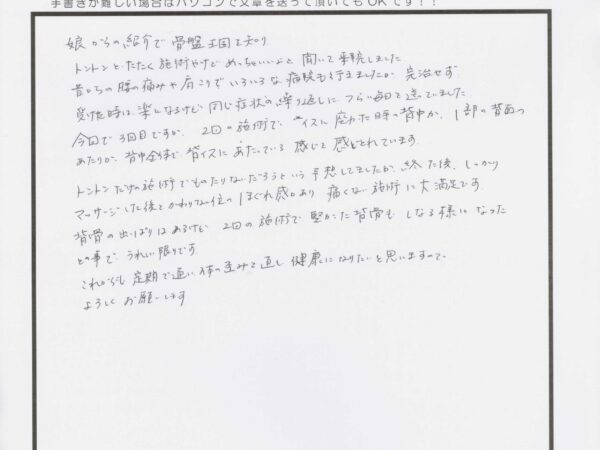 手書きが難しい場合はパソコンで文章を送って頂いてもOKです！！
娘からの紹介で骨盤王国を知り
トントンとたたく施術やけどめっちゃいいよと聞いて来院しました
昔からの腰の痛みや肩こりでいろいろな病院も行きましたが完治せず
受けた時は楽になるけど同じ症状の繰り返しにつらい毎日を送っていました
今回で3回目ですが、2回の施術で、イスに座った時の背中が、1部の背面の
あたりが、背中全体で背イスにあたっている感じと感じとれています。
トントンだけの施術でものたりないだろうという予想してましたが、終った後、しっかり
マッサージした後とかわりない位のほぐれ感もあり痛くない施術に大満足です
背骨の出っぱりはあるけど2回の施術で堅かった背骨もしなる様になった
との事で、うれしい限りです
これからも定期で通い体の歪みを直し健康になりたいと思いますので、
よろしくお願いします